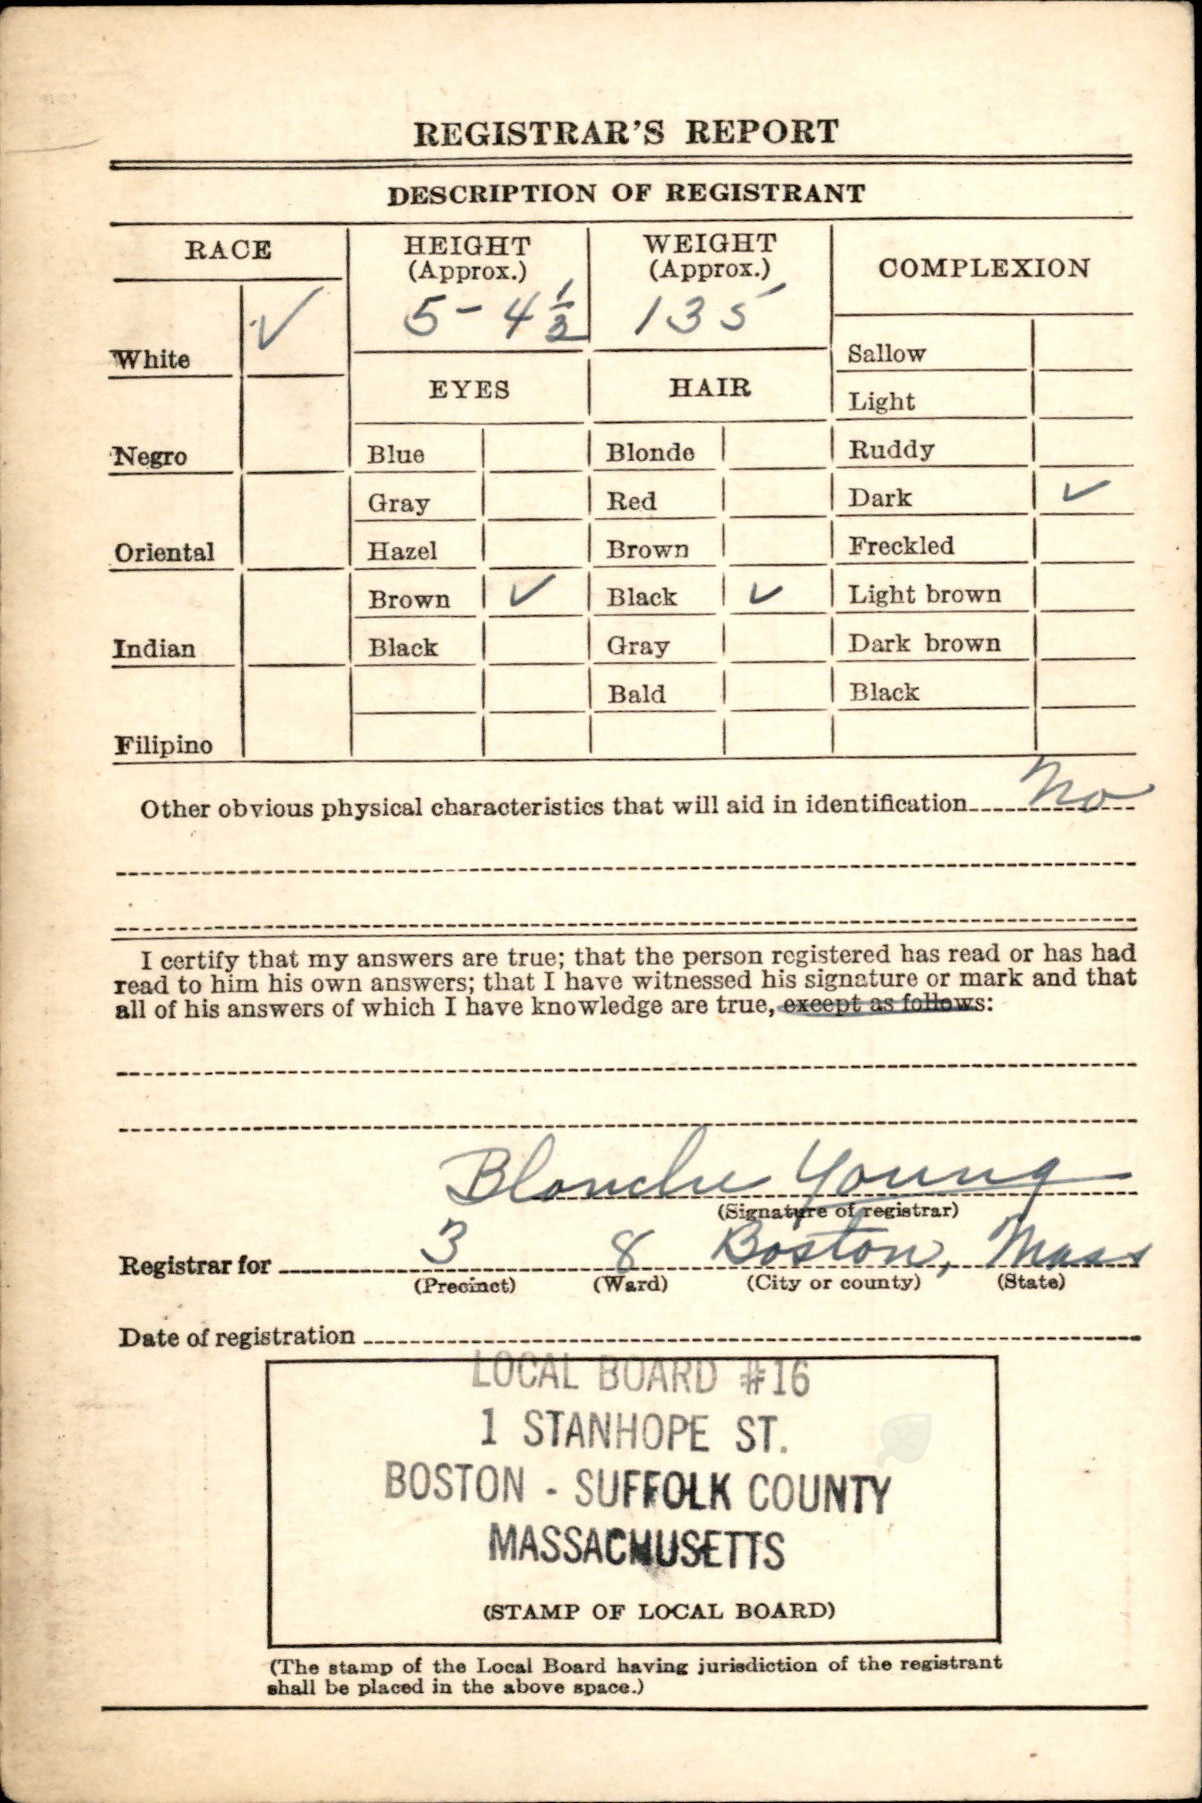 REGISTRAR'S REPORT
DESCRIPTION OF REGISTRANT
RACE
HEIGHT
(Approx.)
5-4 1/2
WEIGHT
(Approx.)
135
COMPLEXION
White ✓
Negro
Oriental
Indian
Filipino
EYES
Blue
Gray
Hazel
Brown ✓
Black
HAIR
Blonde
Red
Brown
Black ✓
Gray
Bald
Sallow
Light
Ruddy
Dark ✓
Freckled
Light brown
Dark brown
Black
Other obvious physical characteristics that will aid in identification No
I certify that my answers are true; that the person registered has read or has had
read to him his own answers; that I have witnessed his signature or mark and that
all of his answers of which I have knowledge are true, except as follows:
Blanche Young
(Signature of registrar)
Registrar for 3 8 Boston, Mass
(Precinct) (Ward) (City or county) (State)
Date of registration
LOCAL BOARD #16
1 STANHOPE ST.
BOSTON - SUFFOLK COUNTY
MASSACHUSETTS
(STAMP OF LOCAL BOARD)
(The stamp of the Local Board having jurisdiction of the registrant
shall be placed in the above space.)